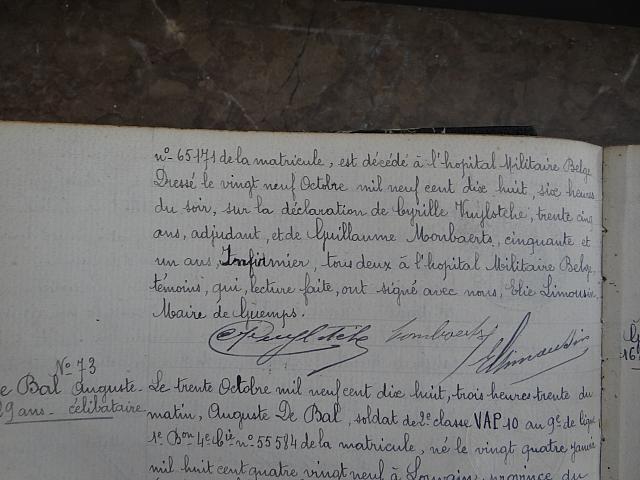 n° 65171 de la matricule, est décédé à l'hopital Militaire Belge
Dressé le vingt neuf Octobre mil neuf cent dix huit, six heures
du soir, sur la déclaration de Cyrille Vuylsteke, trente cinq
ans, adjudant, et de Guillaume Mombaerts, cinquante et
un ans, Infirmier, tous deux à l'hopital Militaire Belge,
témoins, qui, lecture faite, ont signé avec nous, Elie Limousin,
Maire de Guemps.
CVuylsteke Mombaerts E Limousin
N° 73
De Bal Auguste
29 ans - célibataire
Le trente Octobre mil neuf cent dix huit, trois heures trente du
matin, Auguste De Bal, soldat de 2e classe VAP 10 au 9e de ligne
1e Bon 4e Cie n° 55584 de la matricule, né le vingt quatre janvier
mil huit cent quatre vingt neuf à Louvain, province du
16